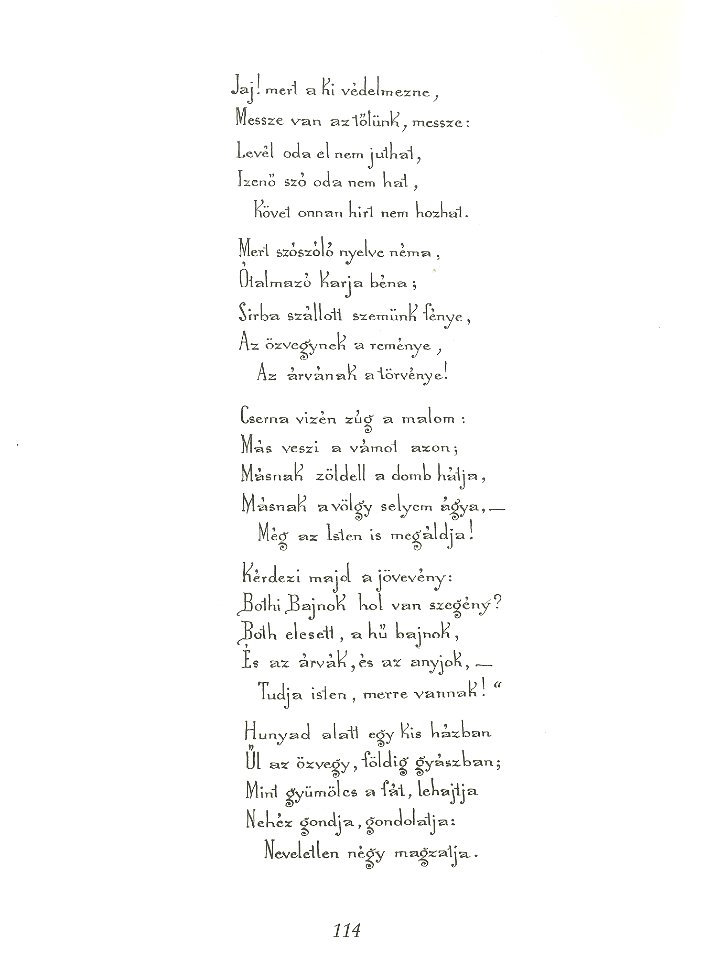 Jaj! mert a ki védelmezne,
Messze van az tőlünk, messze:
Levél oda el nem juthat,
Izenő szó oda nem hat,
Követ onnan hirt nem hozhat.
Mert szószóló nyelve néma,
Ótalmazó karja béna;
Sirba szállott szemünk fénye,
Az özvegynek a reménye,
Az árvának a törvénye!
Cserna vizén zúg a malom:
Más veszi a vámot azon;
Másnak zöldell a domb hátja,
Másnak a völgy selyem ágya, —
Még az Isten is megáldja!
Kérdezi majd a jövevény:
Bothi Bajnok hol van szegény?
Both elesett, a hű bajnok,
És az árvák, és az anyjok, —
Tudja isten, merre vannak! “
Hunyad alatt egy kis házban
Űl az özvegy, földig gyászban;
Mint gyümölcs a fát, lehajtja
Nehéz gondja, gondolatja:
Neveletlen négy magzatja.
114